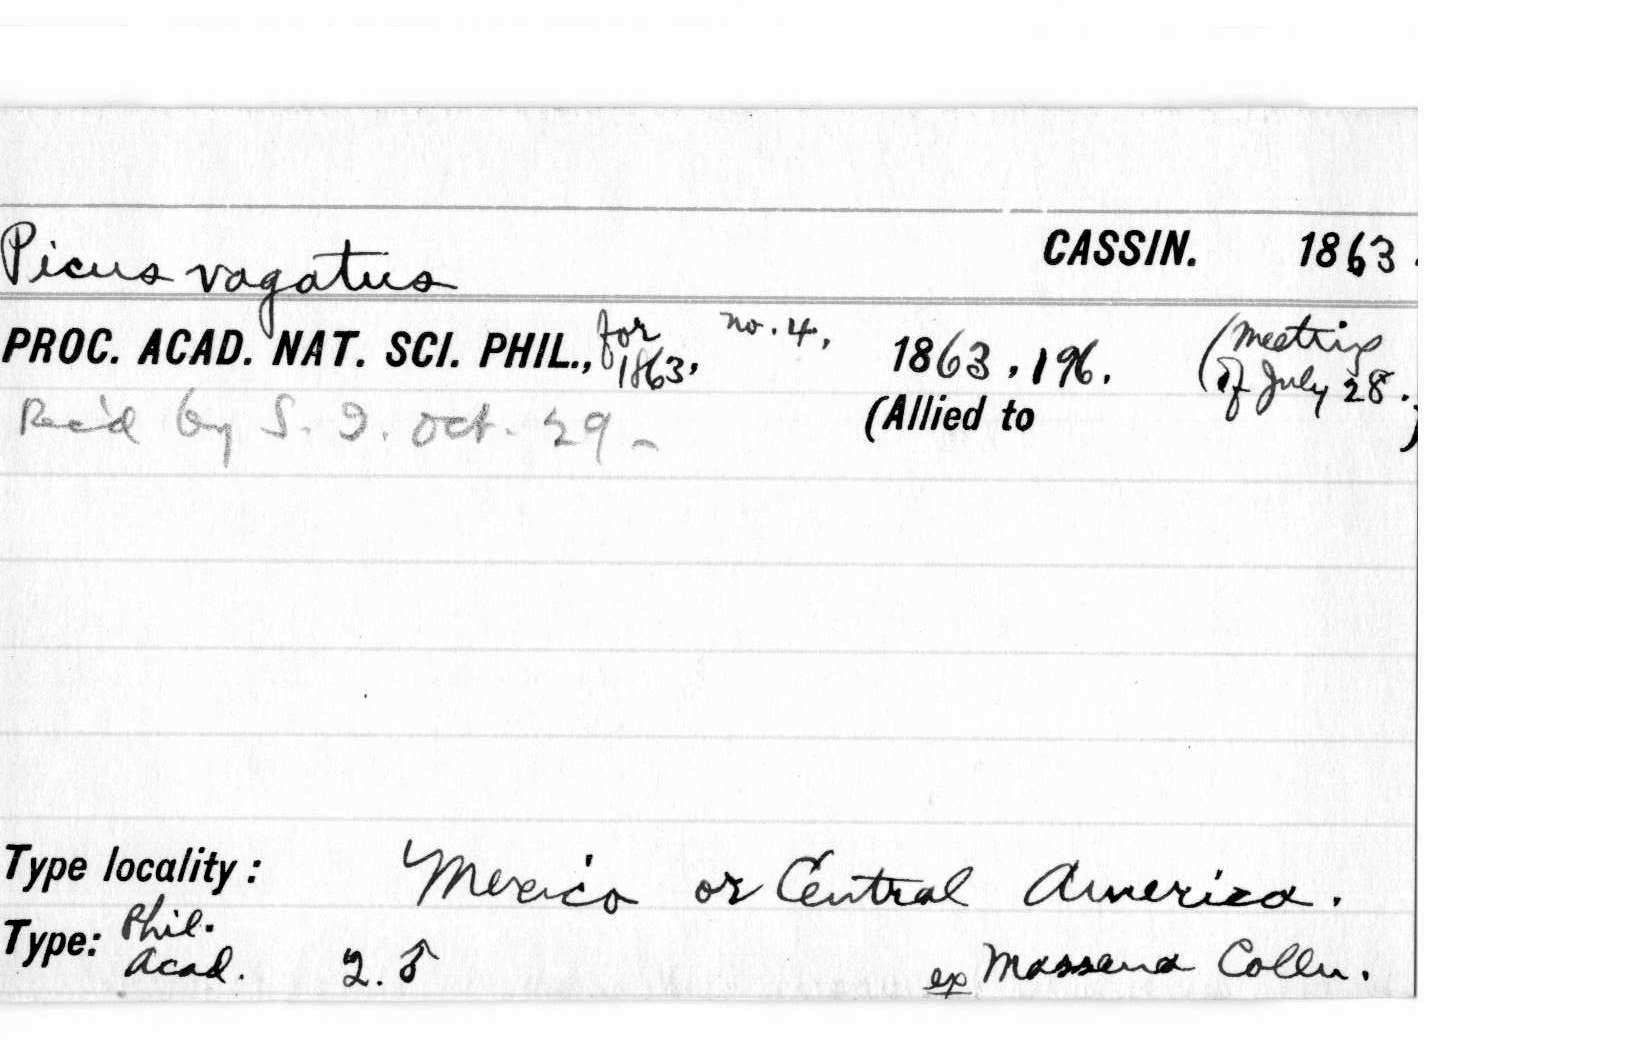 Picus vagatus CASSIN. 1863.
PROC. ACAD. NAT. SCI. PHIL., for 1863, no. 4, 1863, 196. (Meeting of July 28.)
Rec'd by S. I. Oct. 29 - (Allied to )
Type locality: Mexico or Central America.
Type: Phil. Acad. 2. ♂ ex Massena Colln.